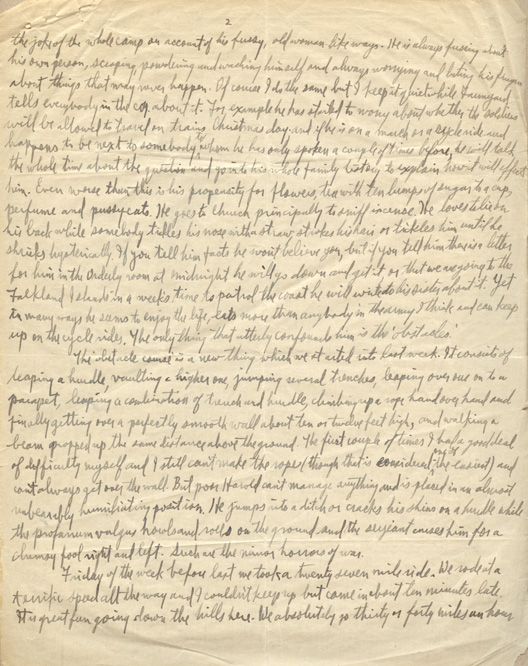 2
the joke of the whole camp on account of his fussy, old woman like ways. He is always fussing about
his own person, scraping, powdering and washing himself and always worrying and biting his fingers
about things that may never happen. Of course I do the same but I keep it quiet while
tells everybody in the coy about it. For example he has started to worry about whether the soldiers
will be allowed to travel on trains Christmas day and if he is on a march or a cycle ride and
happens to be next to somebody whom he has only spoken a couple of times before, he will talk
the whole time about the question and go into his whole family history to explain how it will effect
him. Even worse than this is his propensity for flowers, tea with ten lumps of sugar to a cup,
perfume and pussycats. He goes to church principally to sniff incense. He loves to lie on
his back while somebody tickles his nose with a straw, strokes his hair or tickles him until he
shrieks hysterically. If you tell him facts he won't believe you, but if you tell him there is a letter
for him in the Orderly room at midnight he will go down and get it or that we are going to the
Falkland Islands in a weeks time to patrol the coast he will write to his sister about it. Yet
in many ways he seems to enjoy the life, eats more than anybody in the army I think and can keep
up on the cycle rides. The only thing that utterly confounds him is the 'obstacles.'
The obstacle course is a new thing which we started into last week. It consists of
leaping a hurdle, vaulting a higher one, jumping several trenches, leaping over one on to a
parapet, leaping a combination of trench and hurdle, climbing up a rope hand over hand and
finally getting over a perfectly smooth wall about ten or twelve feet high, and walking a
beam propped up the same distance above the ground. The first couple of times I had a good deal
of difficulty myself and I still can't make the rope (though that is considered the easiest) and
can't always get over the wall. But poor Harold can't manage anything and is placed in an almost
unbearably humiliating position. He jumps into a ditch or cracks his shins on a hurdle while
the profanum vulgus howls and rolls on the ground and the serjeant curses him for a
clumsy fool right and left. Such are the minor horrors of war.
Friday of the week before last we took a twenty seven mile ride. We rode at a
terrific speed all the way and I couldn't keep up but came in about ten minutes late.
It is great fun going down the hills here. We absolutely go thirty or forty miles an hour